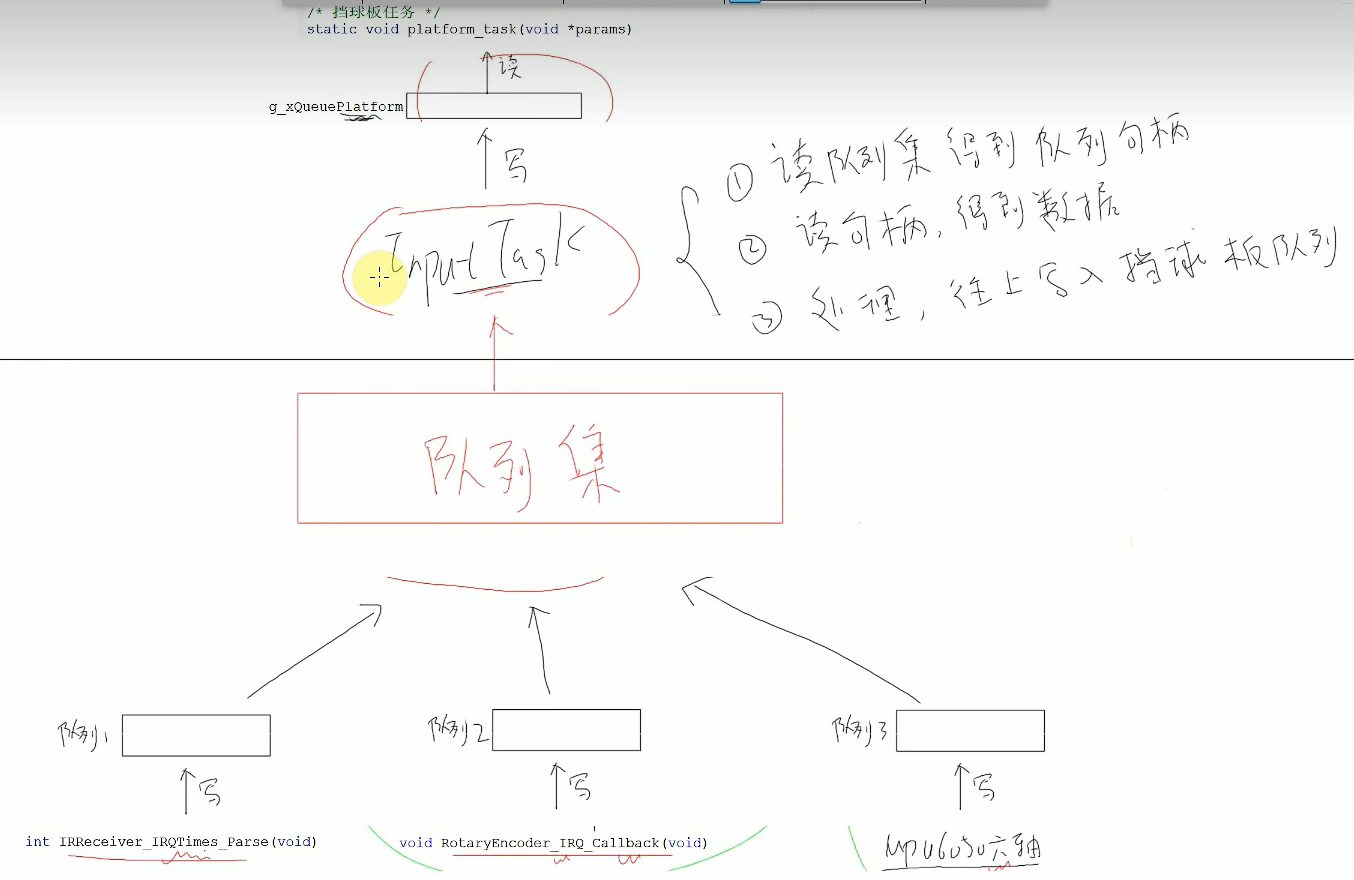 /* 挡球板任务 */
static void platform_task(void *params)
读
g_xQueuePlatform
写
Input Task
① 读队列集 得到 队列句柄
② 读句柄, 得到数据
③ 处理, 往上写入 挡球板队列
队列集
队列1
队列2
队列3
写
写
写
int IRReceiver_IRQTimes_Parse(void)
void RotaryEncoder_IRQ_Callback(void)
Mpu6050六轴